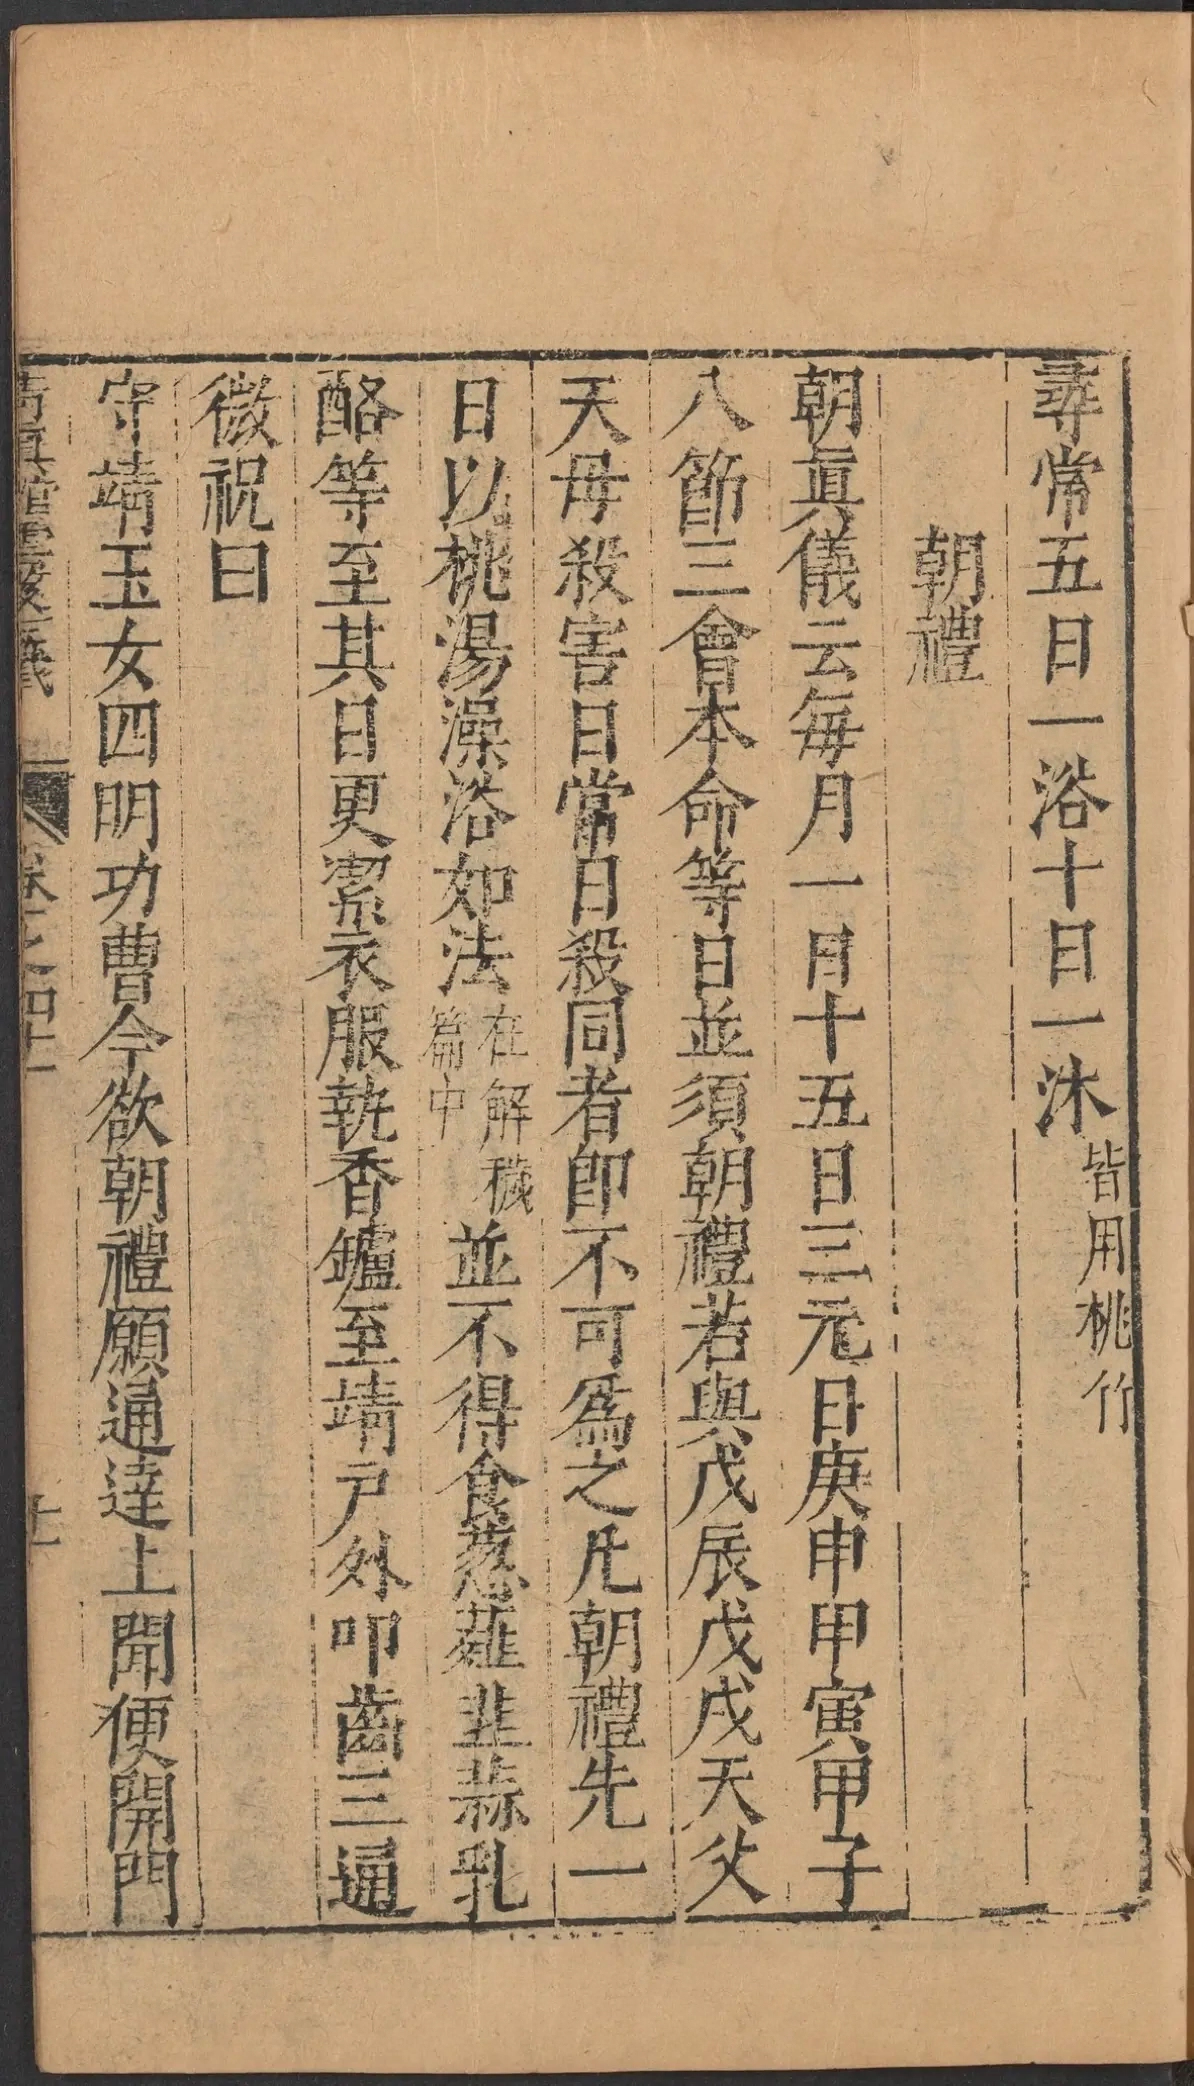 尋常五日一浴十日一沐皆用桃竹
朝禮
朝眞儀云每月一日十五日三元日庚申甲寅甲子
八節三會本命等日並須朝禮若與戊辰戊戌天父
天母殺害日常日殺同者卽不可爲之凡朝禮先一
日以桃湯澡浴如法在解穢篇中並不得食葱薤韭蒜乳
酪等至其日更潔衣服執香鑪至靖戸外叩齒三通
微祝曰
守靖玉女四明功曹今欲朝禮願通達上聞便開門
十一